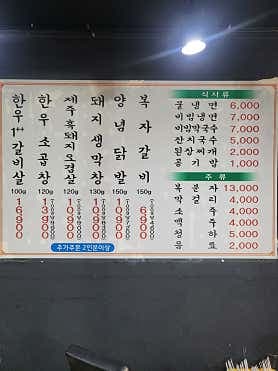 한우1++갈비살
100g
16,900
한우소곱창
120g
13,900
제주흑돼지오겹살
120g
10,900
돼지생막창
130g
10,900
양념닭발
150g
10,900
복자갈비
150g
6,900
추가주문 2인분이상
식사류
물냉면 6,000
비빔냉면 7,000
비빔막국수 7,000
잔치국수 5,000
된장찌개 2,000
공기밥 1,000
주류
복분자 13,000
막걸리 4,000
소주 4,000
맥주 4,000
청하 5,000
음료 2,000